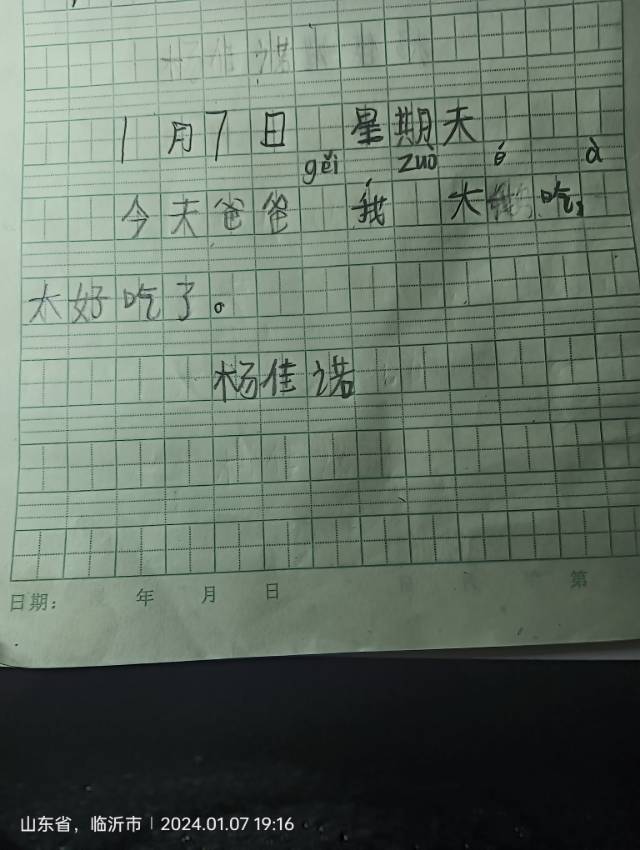 1月7日 星期天
gěi zuo é à
今天爸爸 我 大 吃，
太好吃了。
杨佳诺
日期： 年 月 日 第
山东省，临沂市 | 2024.01.07 19:16